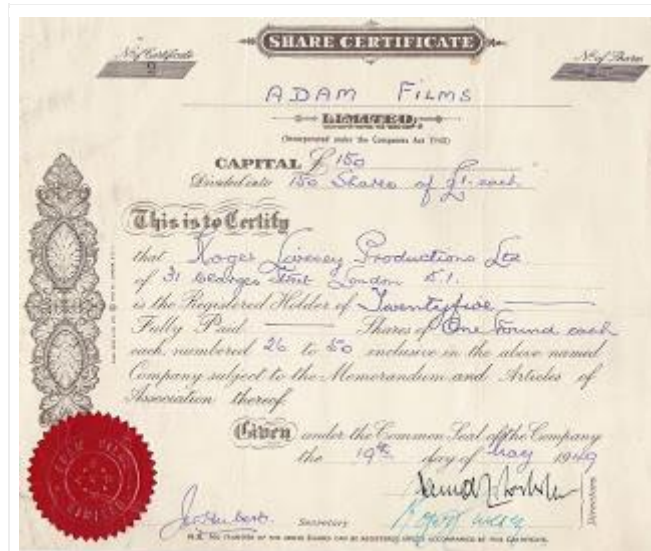 SHARE CERTIFICATE
No. of Certificate
2
No. of Shares
ADAM FILMS
LIMITED.
(Incorporated under the Companies Act 1948)
CAPITAL £ 150
Divided into 150 Shares of £1. each
This is to Certify
that Roger Livesey Productions Ltd
of 31 Georges Street London
is the Registered Holder of Twentyfive
Fully Paid Shares of One Pound each
each, numbered 26 to 50 inclusive in the above named
Company subject to the Memorandum and Articles of
Association thereof.
Given under the Common Seal of the Company
the 19th day of May 1949
Directors
Secretary
LIMITED